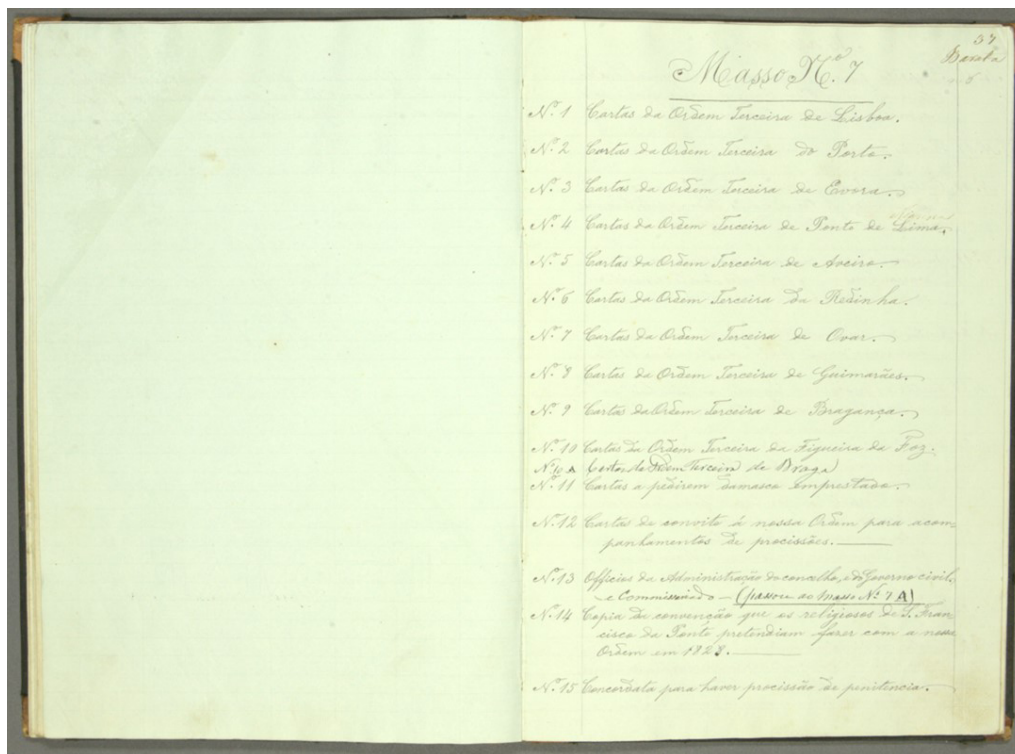 57
Masso N.º 7
Nº 1 Cartas da Ordem Terceira de Lisboa.
Nº 2 Cartas da Ordem Terceira do Porto.
Nº 3 Cartas da Ordem Terceira de Evora.
Nº 4 Cartas da Ordem Terceira de Ponte de Lima.
Nº 5 Cartas da Ordem Terceira de Aveiro.
Nº 6 Cartas da Ordem Terceira da Redinha.
Nº 7 Cartas da Ordem Terceira de Ovar.
Nº 8 Cartas da Ordem Terceira de Guimarães.
Nº 9 Cartas da Ordem Terceira de Bragança.
Nº 10 Cartas da Ordem Terceira da Figueira da Foz.
Nº 10 A Cartas da Ordem Terceira de Braga
Nº 11 Cartas a pedirem damasco emprestado.
Nº 12 Cartas de convite á nossa Ordem para acom-
panhamentos de procissões.
Nº 13 Officios da Administração do concelho, e do Governo civil,
e Commissariado - (passou ao Masso Nº 7 A)
Nº 14 Copia da convenção que os religiosos de S. Fran-
cisco da Ponte pretendiam fazer com a nossa
Ordem em 1828.
Nº 15 Concordata para haver procissão de penitencia.